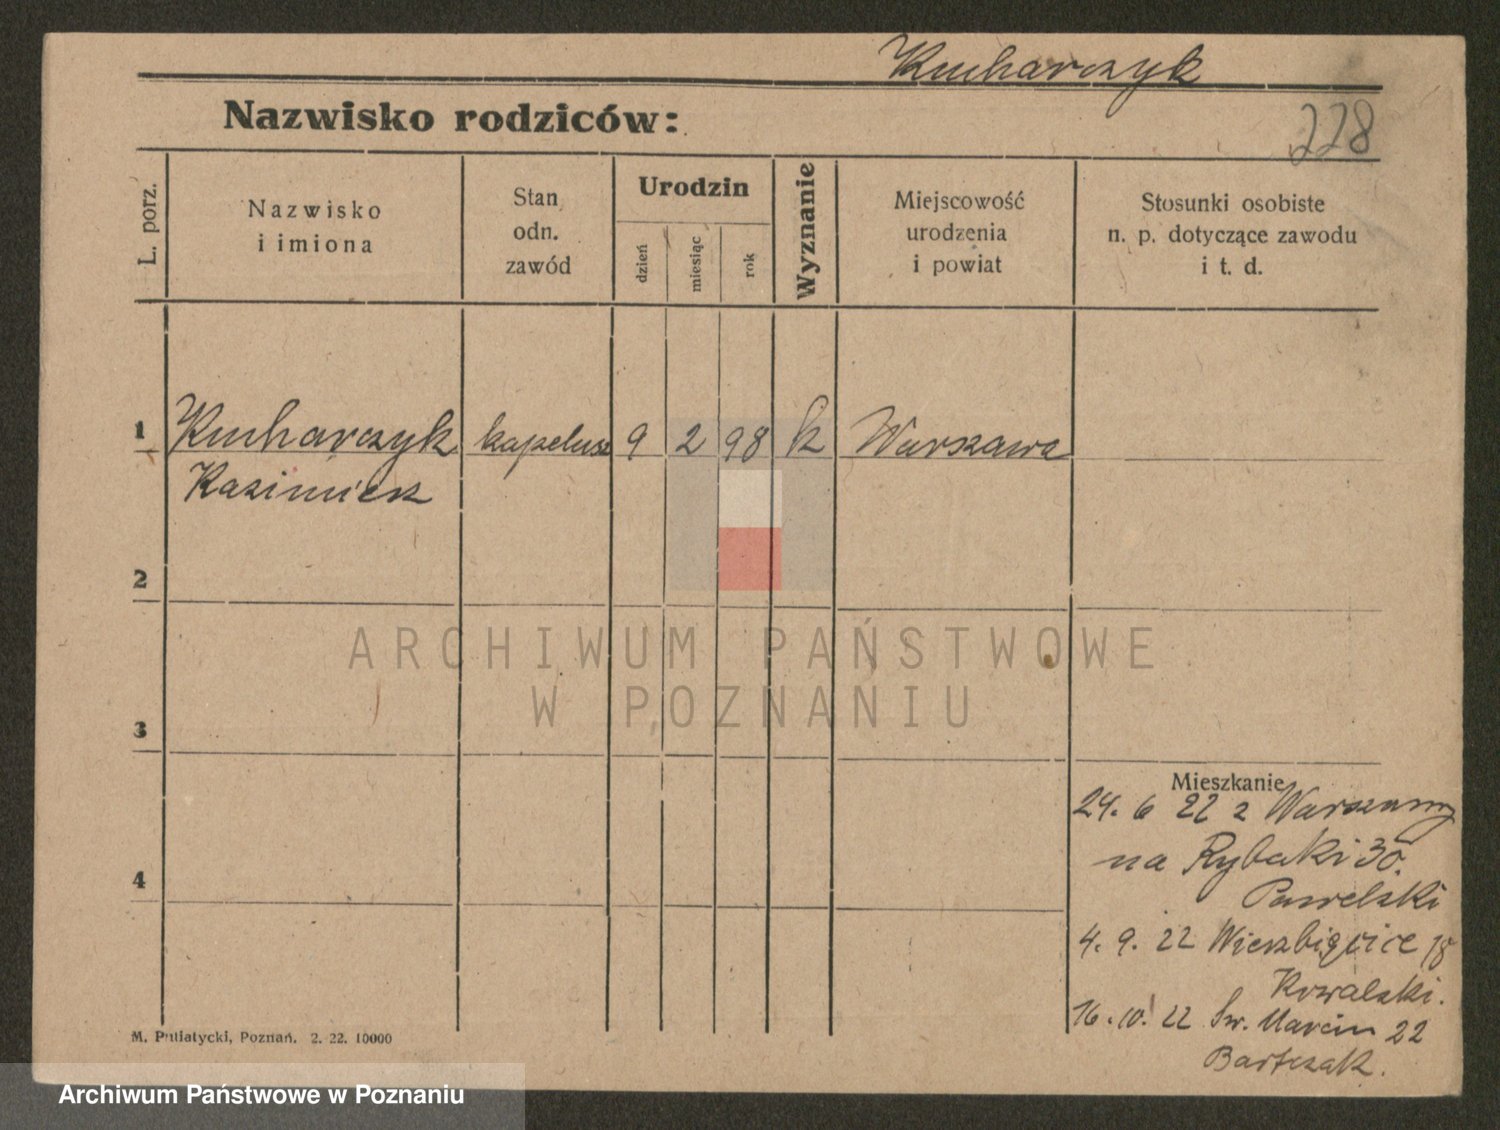 Kucharczyk
Nazwisko rodziców:
228
L. porz.
Nazwisko
i imiona
Stan
odn.
zawód
Urodzin
dzień
miesiąc
rok
Wyznanie
Miejscowość
urodzenia
i powiat
Stosunki osobiste
n. p. dotyczące zawodu
i t. d.
1 Kucharczyk kapelusz 9 2 98 k Warszawa
Kazimierz
2
3
4
Mieszkanie
24. 6 22 z Warszawy
na Rybaki 30.
Pawelski
4. 9. 22 Wierzbięcice 18
Kowalski.
16. 10. 22 Św. Marcin 22
Bartczak.
M. Putiatycki, Poznań. 2. 22. 10000
ARCHIWUM PAŃSTWOWE
W POZNANIU
Archiwum Państwowe w Poznaniu